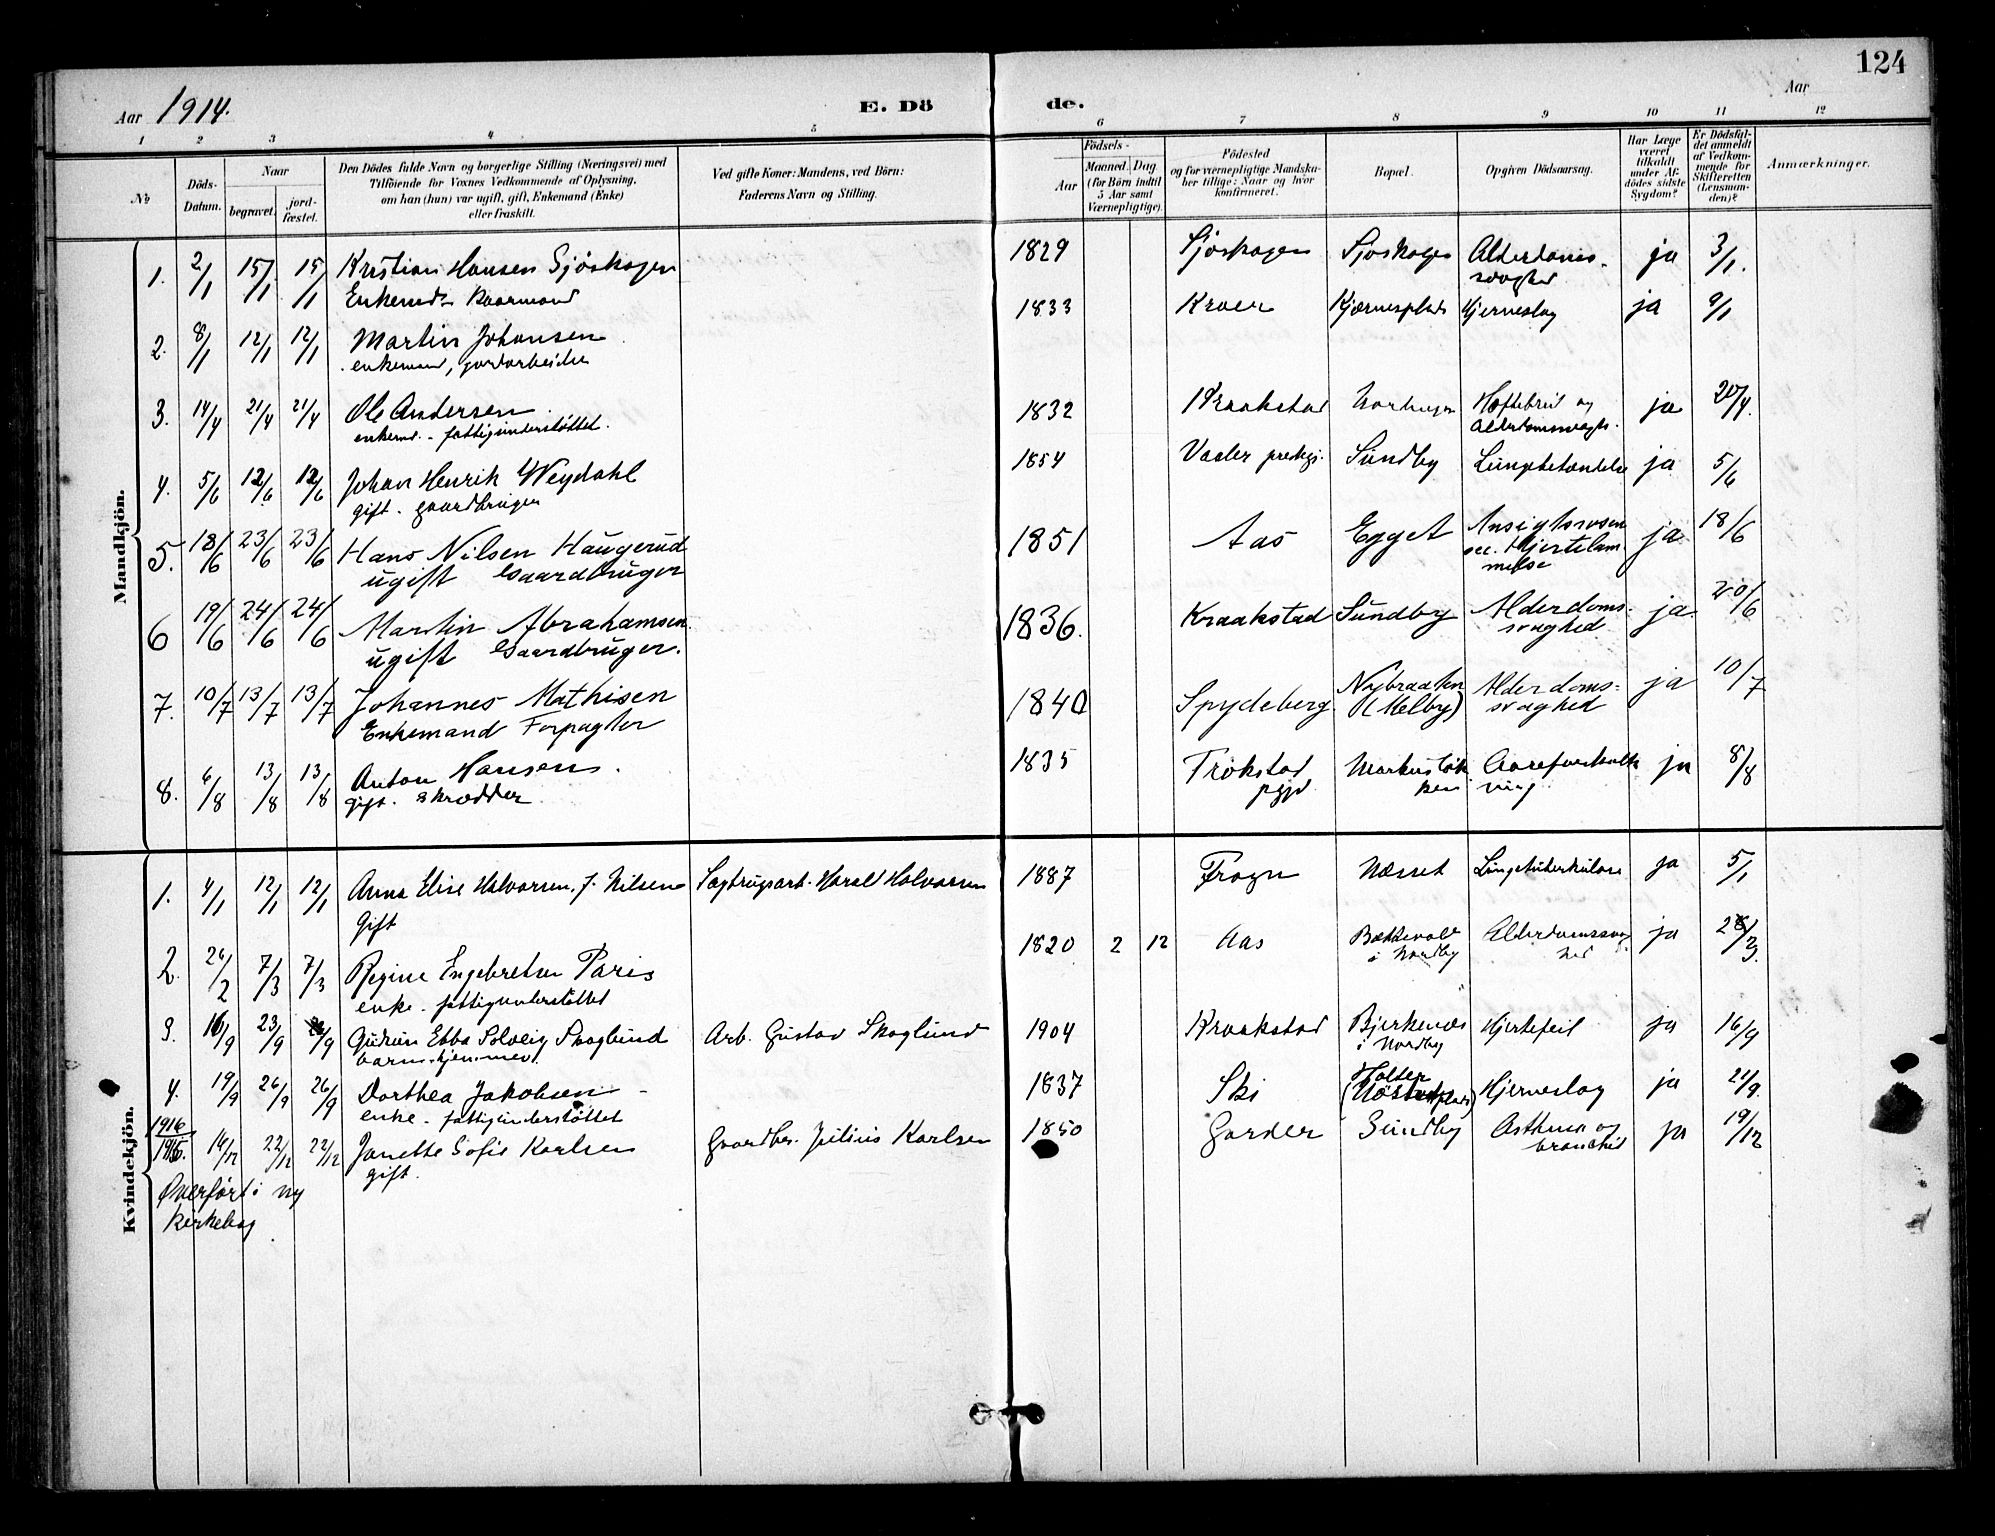 124
Aar 1914. E. Dö de. Aar
1 2 3 4 5 6 7 8 9 10 11 12
№ Döds-Datum. Naar begravet. jord-fæstet. Den Dödes fulde Navn og borgerlige Stilling (Næringsvei) med Tilföiende for Voxnes Vedkommende af Oplysning, om han (hun) var ugift, gift, Enkemand (Enke) eller fraskilt. Ved gifte Koner: Mandens, ved Börn: Faderens Navn og Stilling. Födsels- Aar Maaned. Dag (for Börn indtil 5 Aar samt Værnepligtige). Födested og for værnepligtige Mandskaber tillige: Naar og hvor konfirmeret. Bopæl. Opgiven Dödsaarsag. Har Læge været tilkaldt under Afdödes sidste Sygdom? Er Dödsfaldet anmeldt af Vedkommende for Skifteretten (Lensmanden)? Anmærkninger.
Mandkjön.
1. 2/1 15/1 15/1 Kristian Hansen Sjöskogen 1829 Sjöskogen Sjöskogen Alderdoms- ja 3/1.
Enkemd. Kaarmand svaghed
2. 8/1 12/1 12/1 Martin Johansen 1833 Kroer Kjærnesplads Hjerneslag ja 9/1
enkemand, jordarbeider
3. 14/4 21/4 21/4 Ole Andersen 1832 Kraakstad Hoftebrud og ja 20/4.
enkemd. - fattigunderstöttet. Alderdomssvagh.
4. 5/6 12/6 12/6 Johan Henrik Weydahl 1854 Vaaler prestgj. Sundby Lungebetændelse ja 5/6
gift. gaardbruger
5. 18/6 23/6 23/6 Hans Nilsen Haugerud 1851 Aas Egget Ansigtsrosen ja 18/6
ugift Gaardbruger sec. Hjertelam-
melse
6 19/6 24/6 24/6 Martin Abrahamsen 1836. Kraakstad Sundby Alderdoms- ja. 20/6
ugift Gaardbruger. svaghed
7. 10/7 13/7 13/7 Johannes Mathisen 1840 Spydeberg Nybraaten Alderdoms- ja 10/7
Enkemand Forpagter (Melby) svaghed
8. 6/8 13/8 13/8 Anton Hansen. 1835 Trökstad Aareforkalk- ja 8/8
gift. skrædder pgjd ning
Kvindekjön.
1. 4/1 12/1 12/1 Anna Elise Halvorsen, f. Nilsen Sagbrugsarb. Harald Halvorsen 1887 Frogn Næsset Lungetuberkulose ja 5/1
gift
2. 26/2 7/3 7/3 Regine Engebretsen Paris 1820 2 12 Aas Bækkevold Alderdomssvag- ja 28/3.
enke. fattigunderstöttet i Nordby hed
3. 16/9 23/9 23/9 Gudrun Ebba Solveig Skoglund Arb. Gustav Skoglund 1904 Kraakstad Bjerkenæs Hjertefeil ja 16/9
barn. hjemmev. i Nordby
4. 19/9 26/9 26/9 Dorthea Jakobsen 1837 Ski Holter Hjerneslag ja 21/9.
enke. fattigunderstöttet
1916
1915. 14/12 22/12 22/12 Janette Sofie Karlsen Gaardbr. Julius Karlsen 1850 Garder Sundby Asthma og ja 19/12
gift. bronchit
Overfört i ny
kirkebog